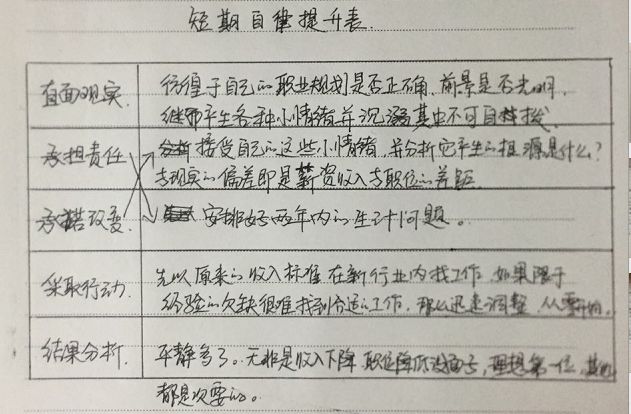 短期自律提升表.
直面现实.
彷徨于自己的职业规划是否正确、前景是否光明,
继而产生各种小情绪并沉溺其中不可自拔.
承担责任
接受自己的这些小情绪,并分析它产生的根源是什么?
与现实的偏差即是薪资收入与职位的差距.
承诺改变.
安排好两年内的生计问题。
采取行动.
先以原来的收入标准在新行业内找工作.如果限于
经验的欠缺很难找到合适的工作,那么迅速调整,从零开始.
结果分析.
平静多了。无非是收入下降,职位降低没面子,理想第一位,其他
都是次要的。